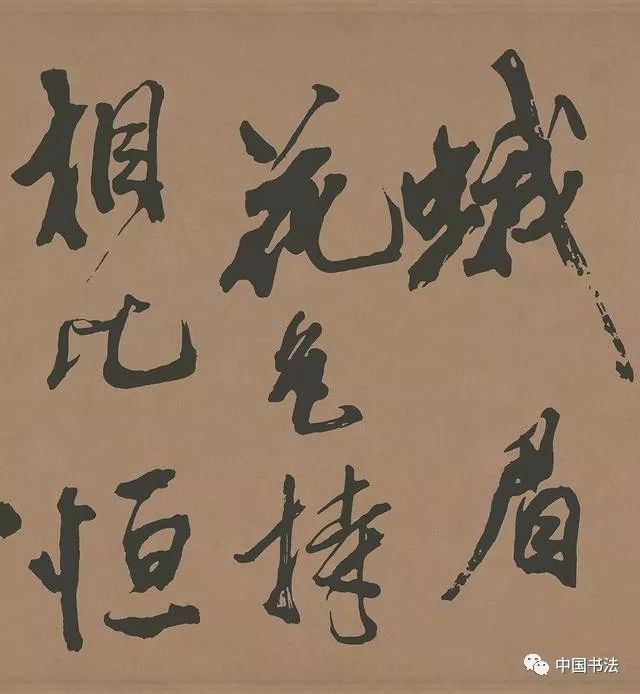 蛾眉
花色捧
相比恒
中国书法